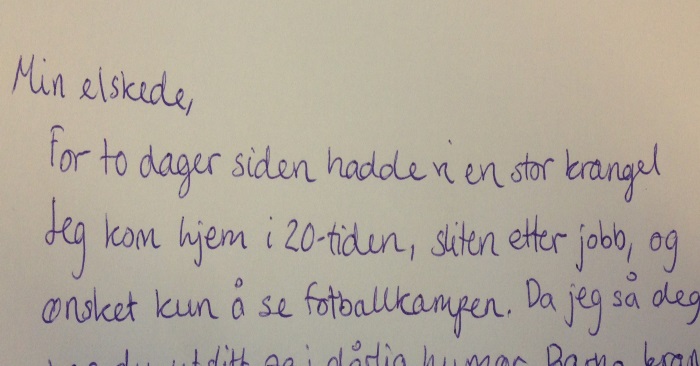 Min elskede,
For to dager siden hadde vi en stor krangel
Jeg kom hjem i 20-tiden, sliten etter jobb, og
ønsket kun å se fotballkampen. Da jeg så deg
du utditt og i dårlig humør. Barna